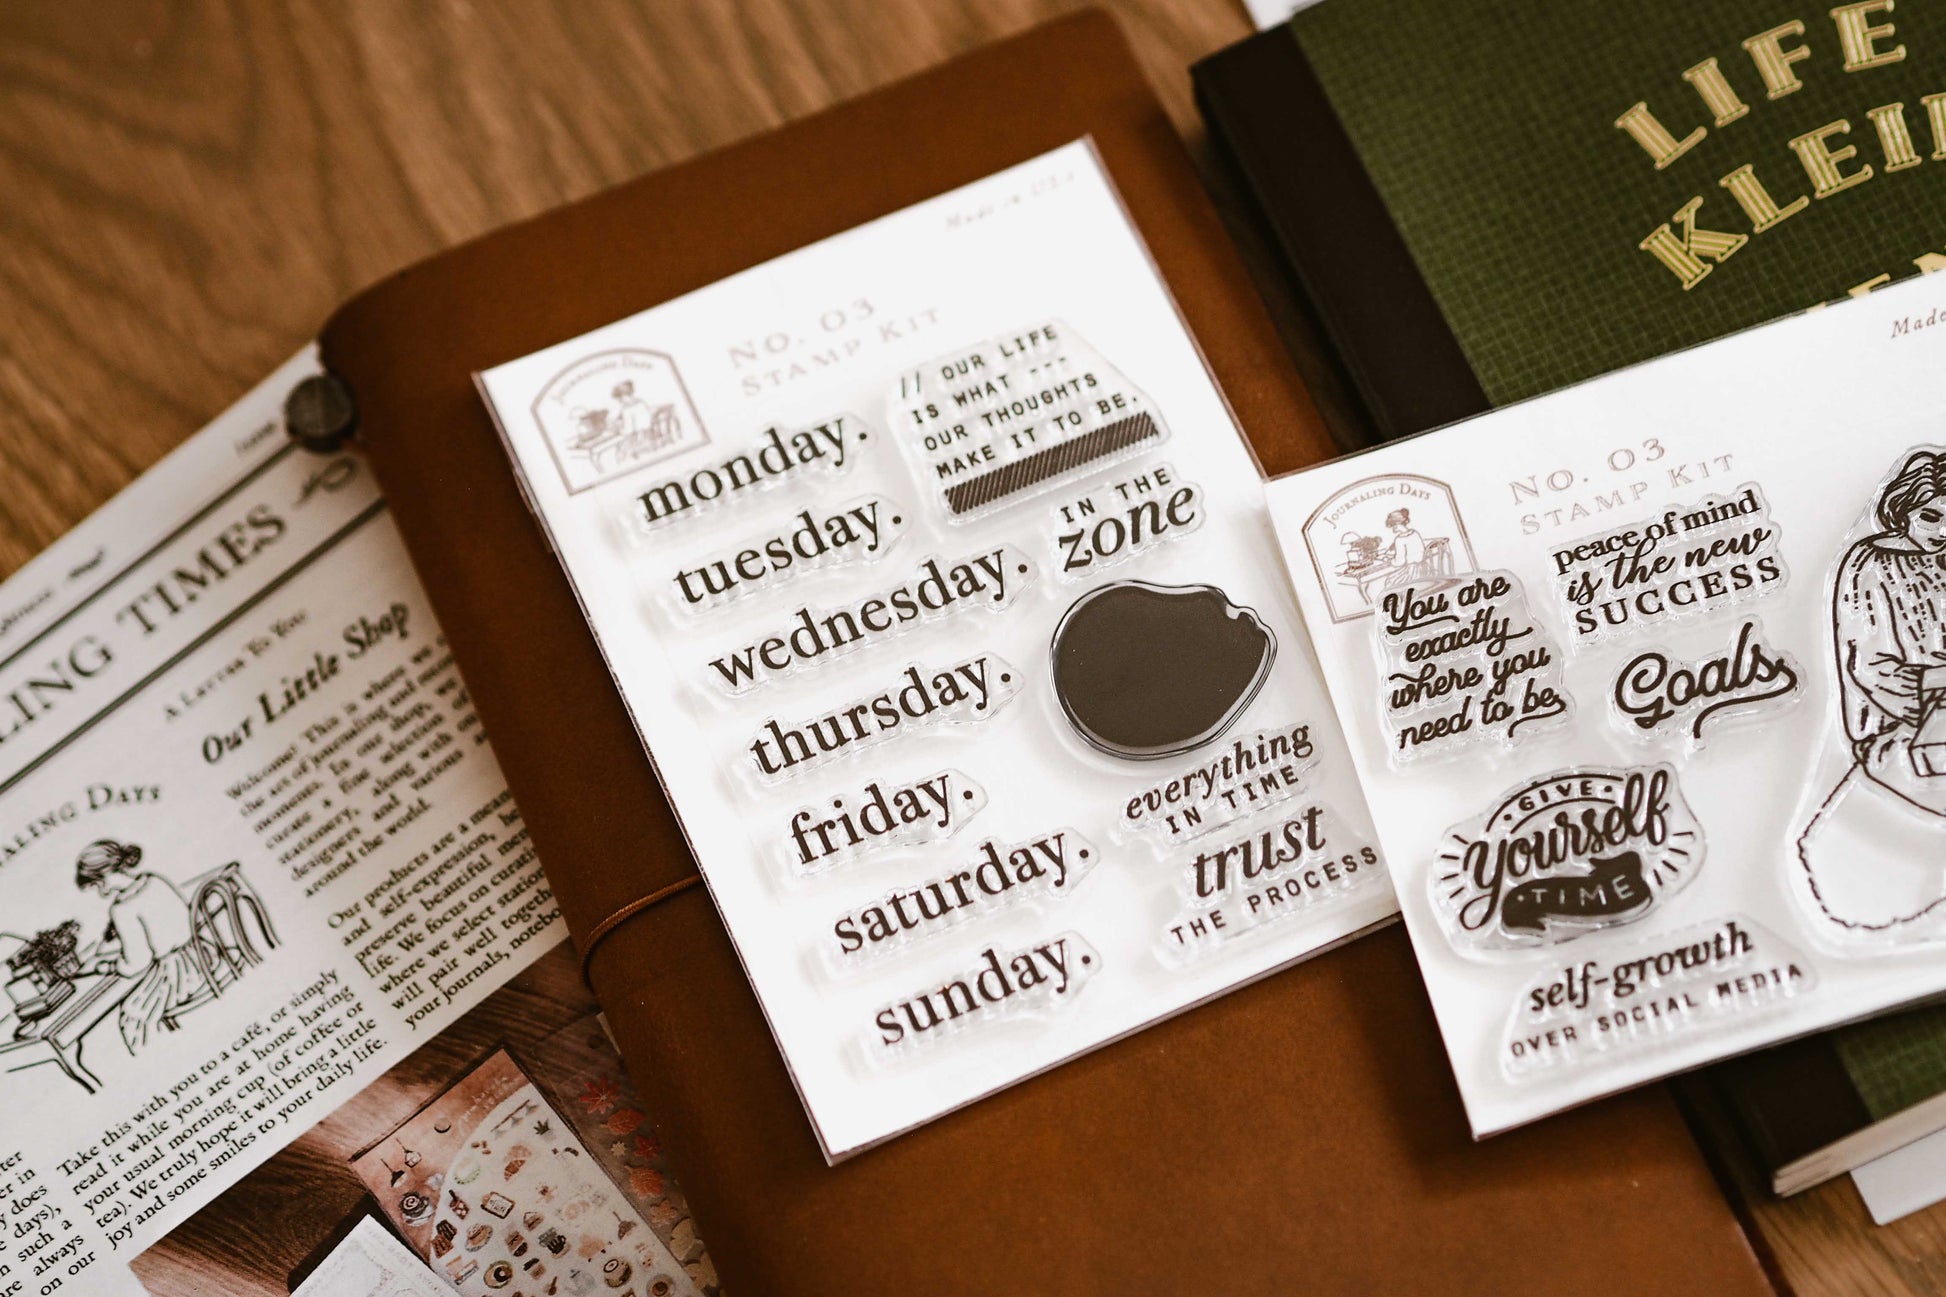 LING TIMES
A LETTER TO YOU
Our Little Shop
Welcome! This is where
the art of journaling and
moments. In our shop, we
curate a fine selection of
stationery, along with
designers and various
around the world.
Our products are a means
and self-expression,
preserve beautiful
life. We focus on
where we select
will pair well together
your journals,
NALING DAYS
Take this with you to a café, or simply
read it while you are at home having
your usual morning cup (of coffee or
tea). We truly hope it will bring a little
joy and some smiles to your daily life.
er in
y does
days),
such a
always
on our
Made in USA
JOURNALING DAYS
NO. 03
STAMP KIT
monday.
tuesday.
wednesday.
thursday.
friday.
saturday.
sunday.
// OUR LIFE
IS WHAT ---
OUR THOUGHTS
MAKE IT TO BE.
IN THE
zone
everything
IN TIME
trust
THE PROCESS
LIFE
KLEI
Made
JOURNALING DAYS
NO. 03
STAMP KIT
You are
exactly
where you
need to be
peace of mind
is the new
SUCCESS
Goals
GIVE
Yourself
TIME
self-growth
OVER SOCIAL MEDIA